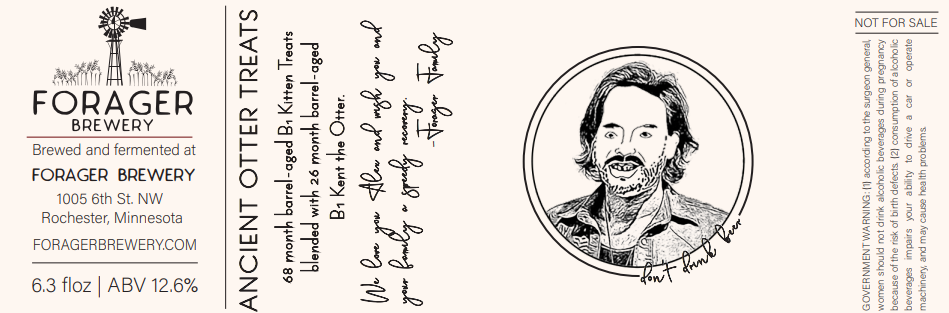 FORAGER
BREWERY
Brewed and fermented at
FORAGER BREWERY
1005 6th St. NW
Rochester, Minnesota
FORAGERBREWERY.COM
6.3 floz | ABV 12.6%
ANCIENT OTTER TREATS
68 month barrel-aged B1 Kitten Treats
blended with 26 month barrel-aged
B1 Kent the Otter.
We love you Alex and wish you and
your family a speedy recovery.
-Forager Family
don't drink beer
NOT FOR SALE
GOVERNMENT WARNING: [1] according to the surgeon general,
women should not drink alcoholic beverages during pregnancy
because of the risk of birth defects. [2] consumption of alcoholic
beverages impairs your ability to drive a car or operate
machinery, and may cause health problems.